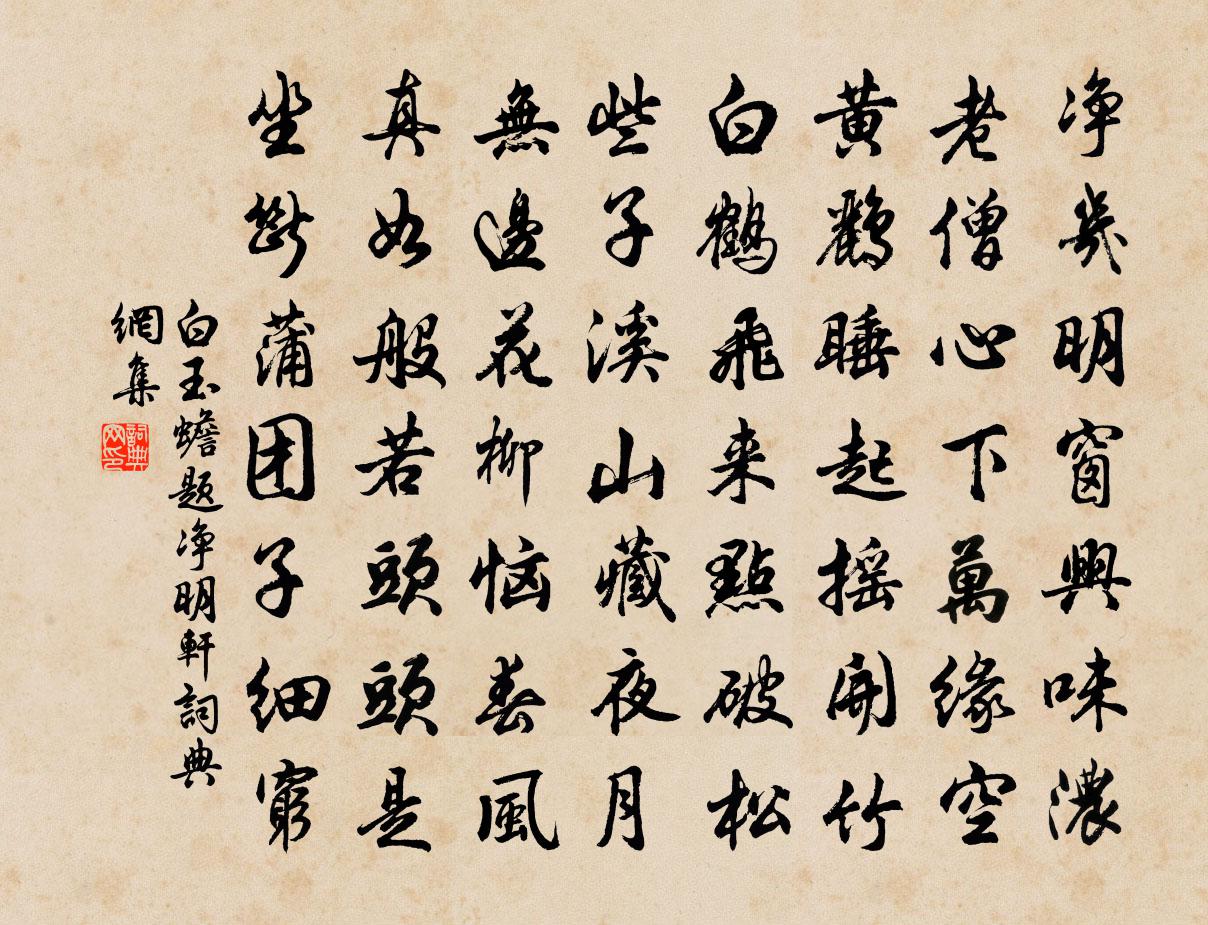 净几明窗興味濃
老僧心下萬緣空
黄鸝睡起摇開竹
白鶴飛来點破松
些子溪山藏夜月
無邊花柳恼春風
真如般若頭頭是
坐斷蒲团子細窮
白玉蟾题净明軒詞典
網集
詞典
网印